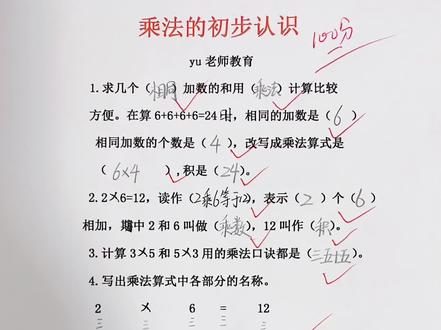 乘法的初步认识
100分
yu 老师教育
1.求几个（相同）加数的和用（乘法）计算比较
方便。在算 6+6+6+6=24 时，相同的加数是（6）
相同加数的个数是（4），改写成乘法算式是
（6×4），积是（24）。
2.2×6=12，读作（2乘6等于12），表示（2）个（6）
相加，其中 2 和 6 叫做（乘数），12 叫作（积）。
3.计算 3×5 和 5×3 用的乘法口诀都是（三五十五）。
4.写出乘法算式中各部分的名称。
2 × 6 = 12